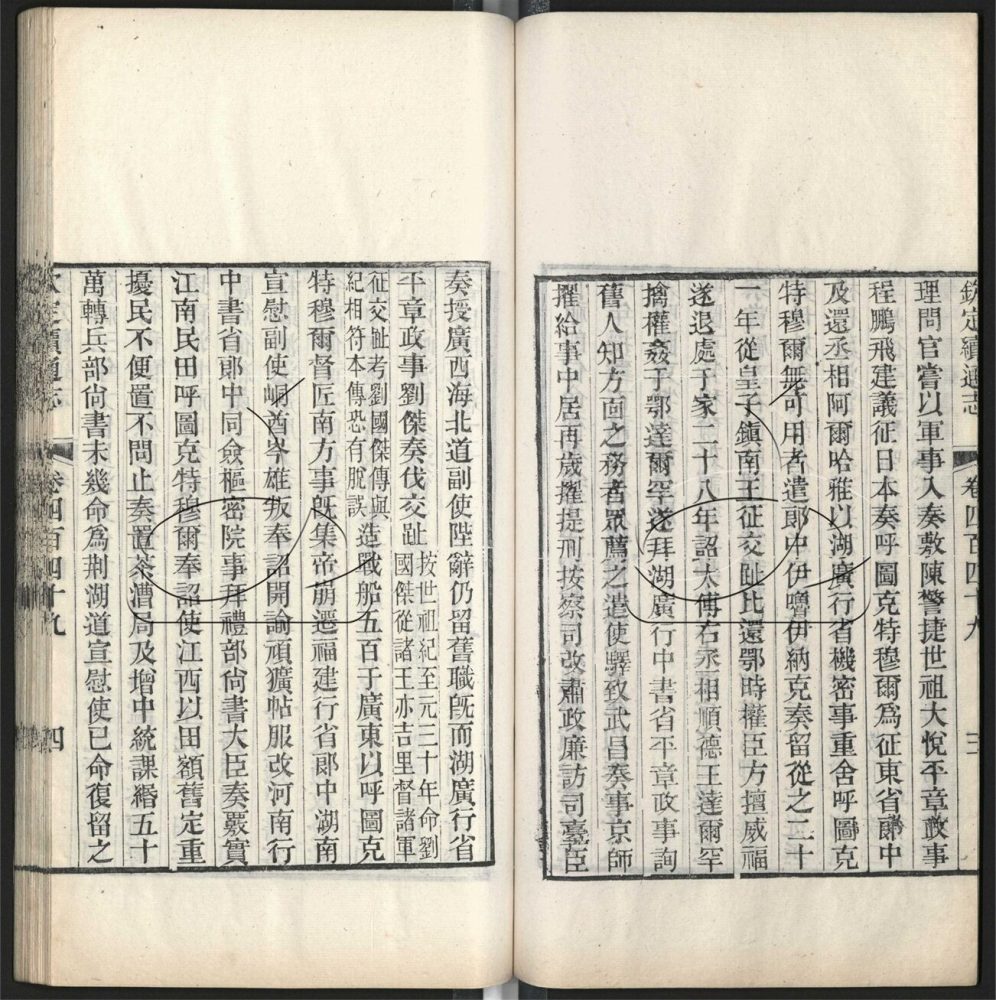 欽定續通志 卷四百四十九 三
理問官嘗以軍事入奏敷陳警捷世祖大悅平章政事
程鵬飛建議征日本奏呼圖克特穆爾爲征東省郎中
及還丞相阿爾哈雅以湖廣行省機密事重舍呼圖克
特穆爾無可用者遣郎中伊嚕伊納克奏留從之二十
一年從皇子鎮南王征交趾比還鄂時權臣方擅威福
遂退處于家二十八年詔太傅右丞相順德王達爾罕
擒權姦于鄂達爾罕遂拜湖廣行中書省平章政事詢
舊人知方面之務者眾薦之遣使驛致武昌奏事京師
擢給事中居再歲擢提刑按察司改肅政廉訪司臺臣
奏授廣西海北道副使陛辭仍留舊職旣而湖廣行省
平章政事劉傑奏伐交趾按世祖紀至元三十年命劉國傑從諸王亦吉里督諸軍
征交趾考劉國傑傳與紀相符本傳恐有脫誤造戰船五百于廣東以呼圖克
特穆爾督匠南方事旣集帝崩遷福建行省郎中湖南
宣慰副使峒酋岑雄叛奉詔開諭頑獷帖服改河南行
中書省郎中同僉樞密院事拜禮部尙書大臣奏覈實
江南民田呼圖克特穆爾奉詔使江西以田額舊定重
擾民不便置不問止奏置茶漕局及增中統課緡五十
萬轉兵部尙書未幾命爲荆湖道宣慰使已命復留之
欽定續通志 卷四百四十九 四